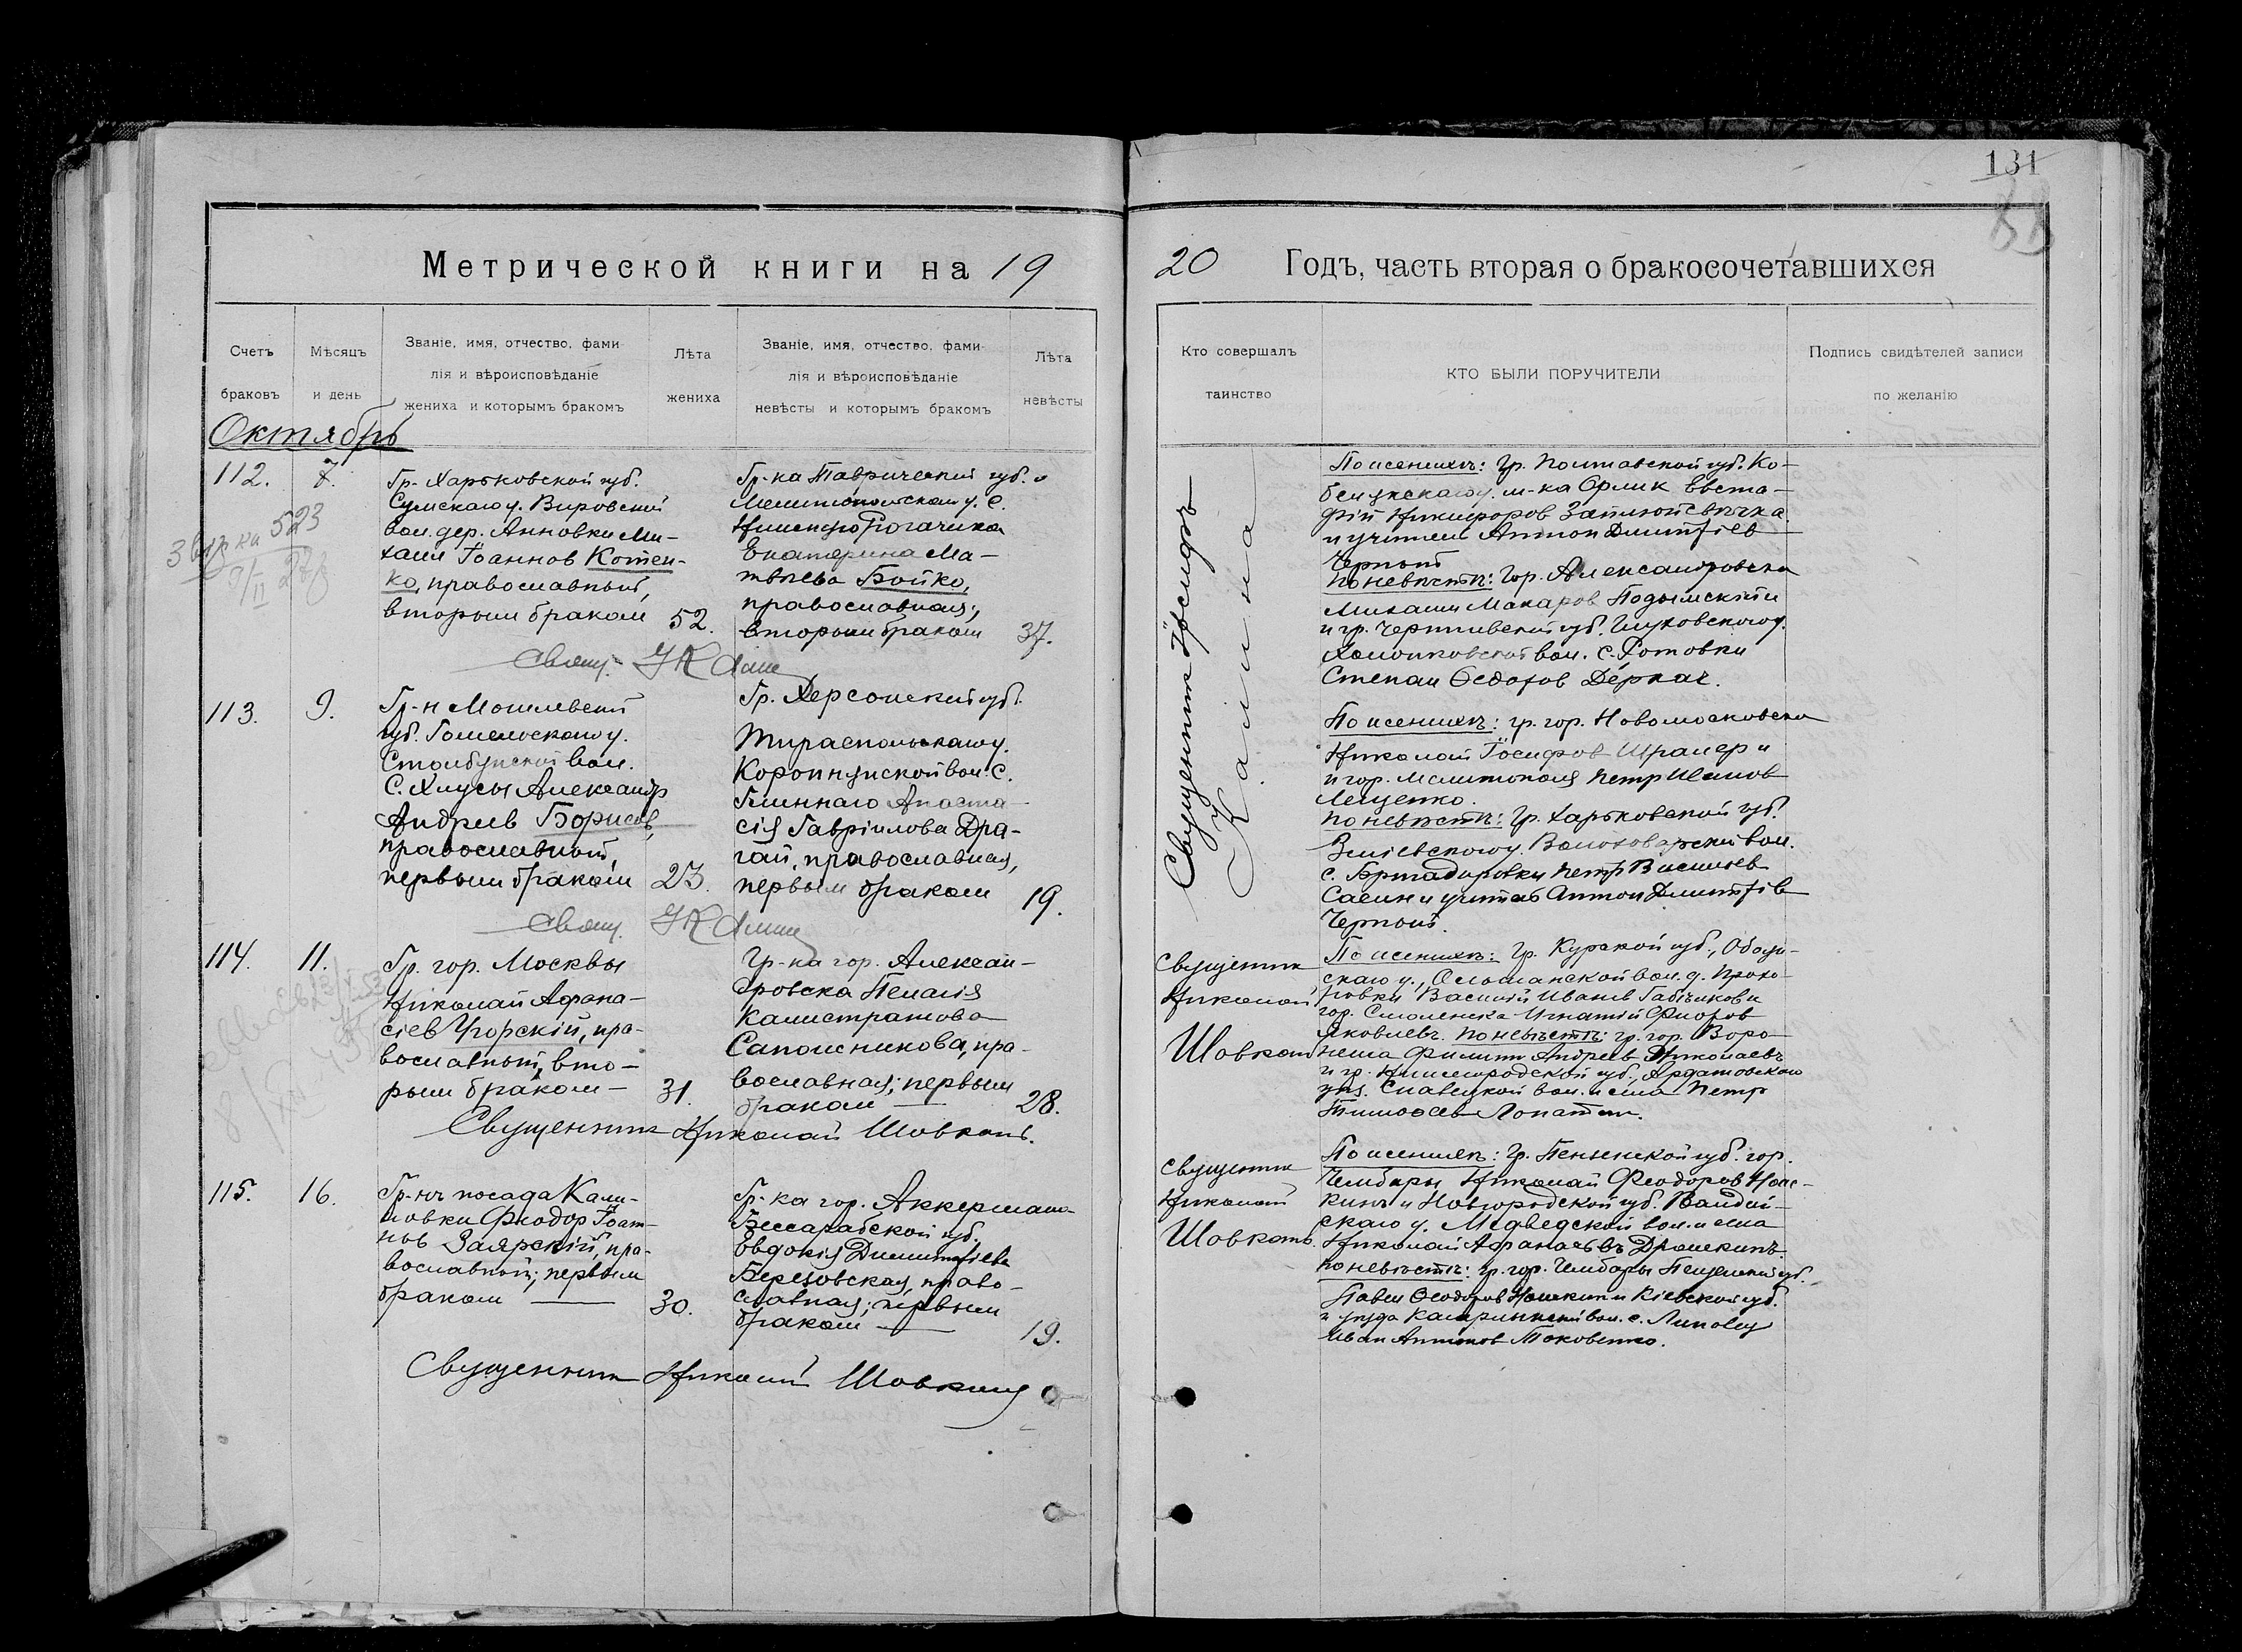 131
Метрической книги на 19
20 Годъ, часть вторая о бракосочетавшихся
Счетъ браковъ
Мѣсяцъ и день
Званіе, имя, отчество, фами-
лія и вѣроисповѣданіе
жениха и которымъ бракомъ
Лѣта жениха
Званіе, имя, отчество, фами-
лія и вѣроисповѣданіе
невѣсты и которымъ бракомъ
Лѣта невѣсты
Кто совершалъ таинство
КТО БЫЛИ ПОРУЧИТЕЛИ
Подпись свидѣтелей записи по желанію
Октябрь
112.
7.
Гр. Харьковской губ.
Сумскаго у. Вировской
вол. дер. Анновки Ми-
хаил Іоаннов Котен-
ко, православный,
вторым браком
52.
Гр-ка Таврической губ.
Мелитопольскаго у. с.
Нижняго Рогачика
Екатерина Ма-
твѣева Бойко,
православная;
вторым браком
37.
Священникъ Іосифъ
Калина
По женихѣ: Гр. Полтавской губ. Ко-
белякскаго у. м-ка Орлик Евста-
фій Никифоров
и учитель Антон Дмитріев
Черный
По невѣстѣ: Гор. Александровска
Михаил Макаров Подымскій и
и гр. Черниговской губ. Глуховского у.
вол. с.
Степан Федотов Деркач.
Свящ. І Калин
113.
9.
Гр-н Могилевской
губ. Гомельскаго у.
Столбунской вол.
с. Хлусы Александр
Андреев Борисов,
православный,
первым браком
23.
Гр. Херсонской губ.
Тираспольскаго у.
Коротнунской вол. с.
Глиннаго Анаста-
сія Гавріилова Дра-
гай, православная,
первым браком
19.
По женихѣ: гр. гор. Новомосковска
Николай Іосифов Шрамер и
и гор. Мелитополя Петр Иванов
Лещенко.
По невѣстѣ: Гр. Харьковской губ.
Зміевского у. Волоховоярской вол.
с. Бригадировки Петр Васильев
Саенин учитель Антон Дмитріев
Черный.
Свящ. І Калин
114.
11.
Гр. гор. Москвы
Николай Афана-
сіев Угорскій, пра-
вославный, вто-
рым браком
31.
Гр-ка гор. Алексан-
дровска Пелагія
Калистратова
Сапожникова, пра-
вославная; первым
браком
28.
Священник
Николай
Шовкопл
По женихѣ: Гр. Курской губ., Обоян-
скаго у., вол. д. Прохо-
ровки Василій Иванов и
гор. Смоленска Игнатій Фиоров
Яковлевъ. По невѣстѣ: гр. гор. Воро-
нежа Филипп Андреев Николаевъ
и гр. Нижегородской губ., Ардатовского
уѣз. вол. и села Петр
Тимофеев Лопатин.
Священник Николай Шовкопл.
115.
16.
Гр-нъ посада Кали-
новки Феодор Іоан-
нов Заярскій, пра-
вославный; первым
браком
30.
Гр-ка гор. Аккермана
Бессарабской губ.
Евдокія Димитріева
Березовская, право-
славная; первым
браком
19.
Священник
Николай
Шовкопл.
По женихѣ: Гр. Пензенской губ. гор.
Чембары Николай Феодоров Нош-
кинъ и Новгородской губ. Валдай-
скаго у. Медведской вол. и села
Николай Афанасьевъ Дрожкинъ.
По невѣстѣ: гр. гор. Чембары Пензенской губ.
Павел Феодоров Ношкин и Кіевской губ.
и уѣзда вол. с. Липовец
Иван Антонов Токовенко.
Священник Николай Шовкопл